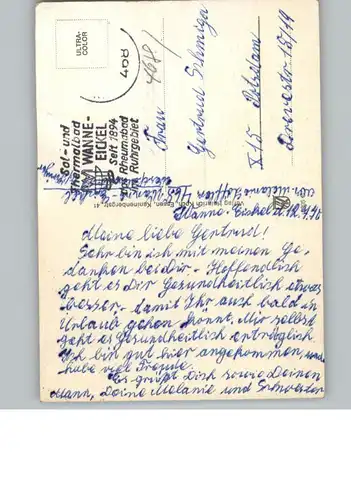 ULTRA-
COLOR
468
4681
Sol- und
Thermalbad
WANNE-
EICKEL
Seit 1894
das Rheumabad
im Ruhrgebiet
Frau
Gertrud
X15 Potsdam
15/19
Verlag Heinrich Koch, Essen, Kaninenberg 41
Wanne-Eickel d. 12.
Meine liebe Gertrud!
Sehr bin ich mit meinen Ge,
danken bei Dir. Hoffendlich
geht es Dir Gesundheitlich etwas
besser. damit Ihr auch bald in
Urlaub gehen könnt. Mir selbst
geht es Gesundheitlich erträglich
Ich bin gut hier angekommen, und
habe viel Freude.
Es grüßt Dich sowie Deinen
Mann, Deine Melanie und Schwester